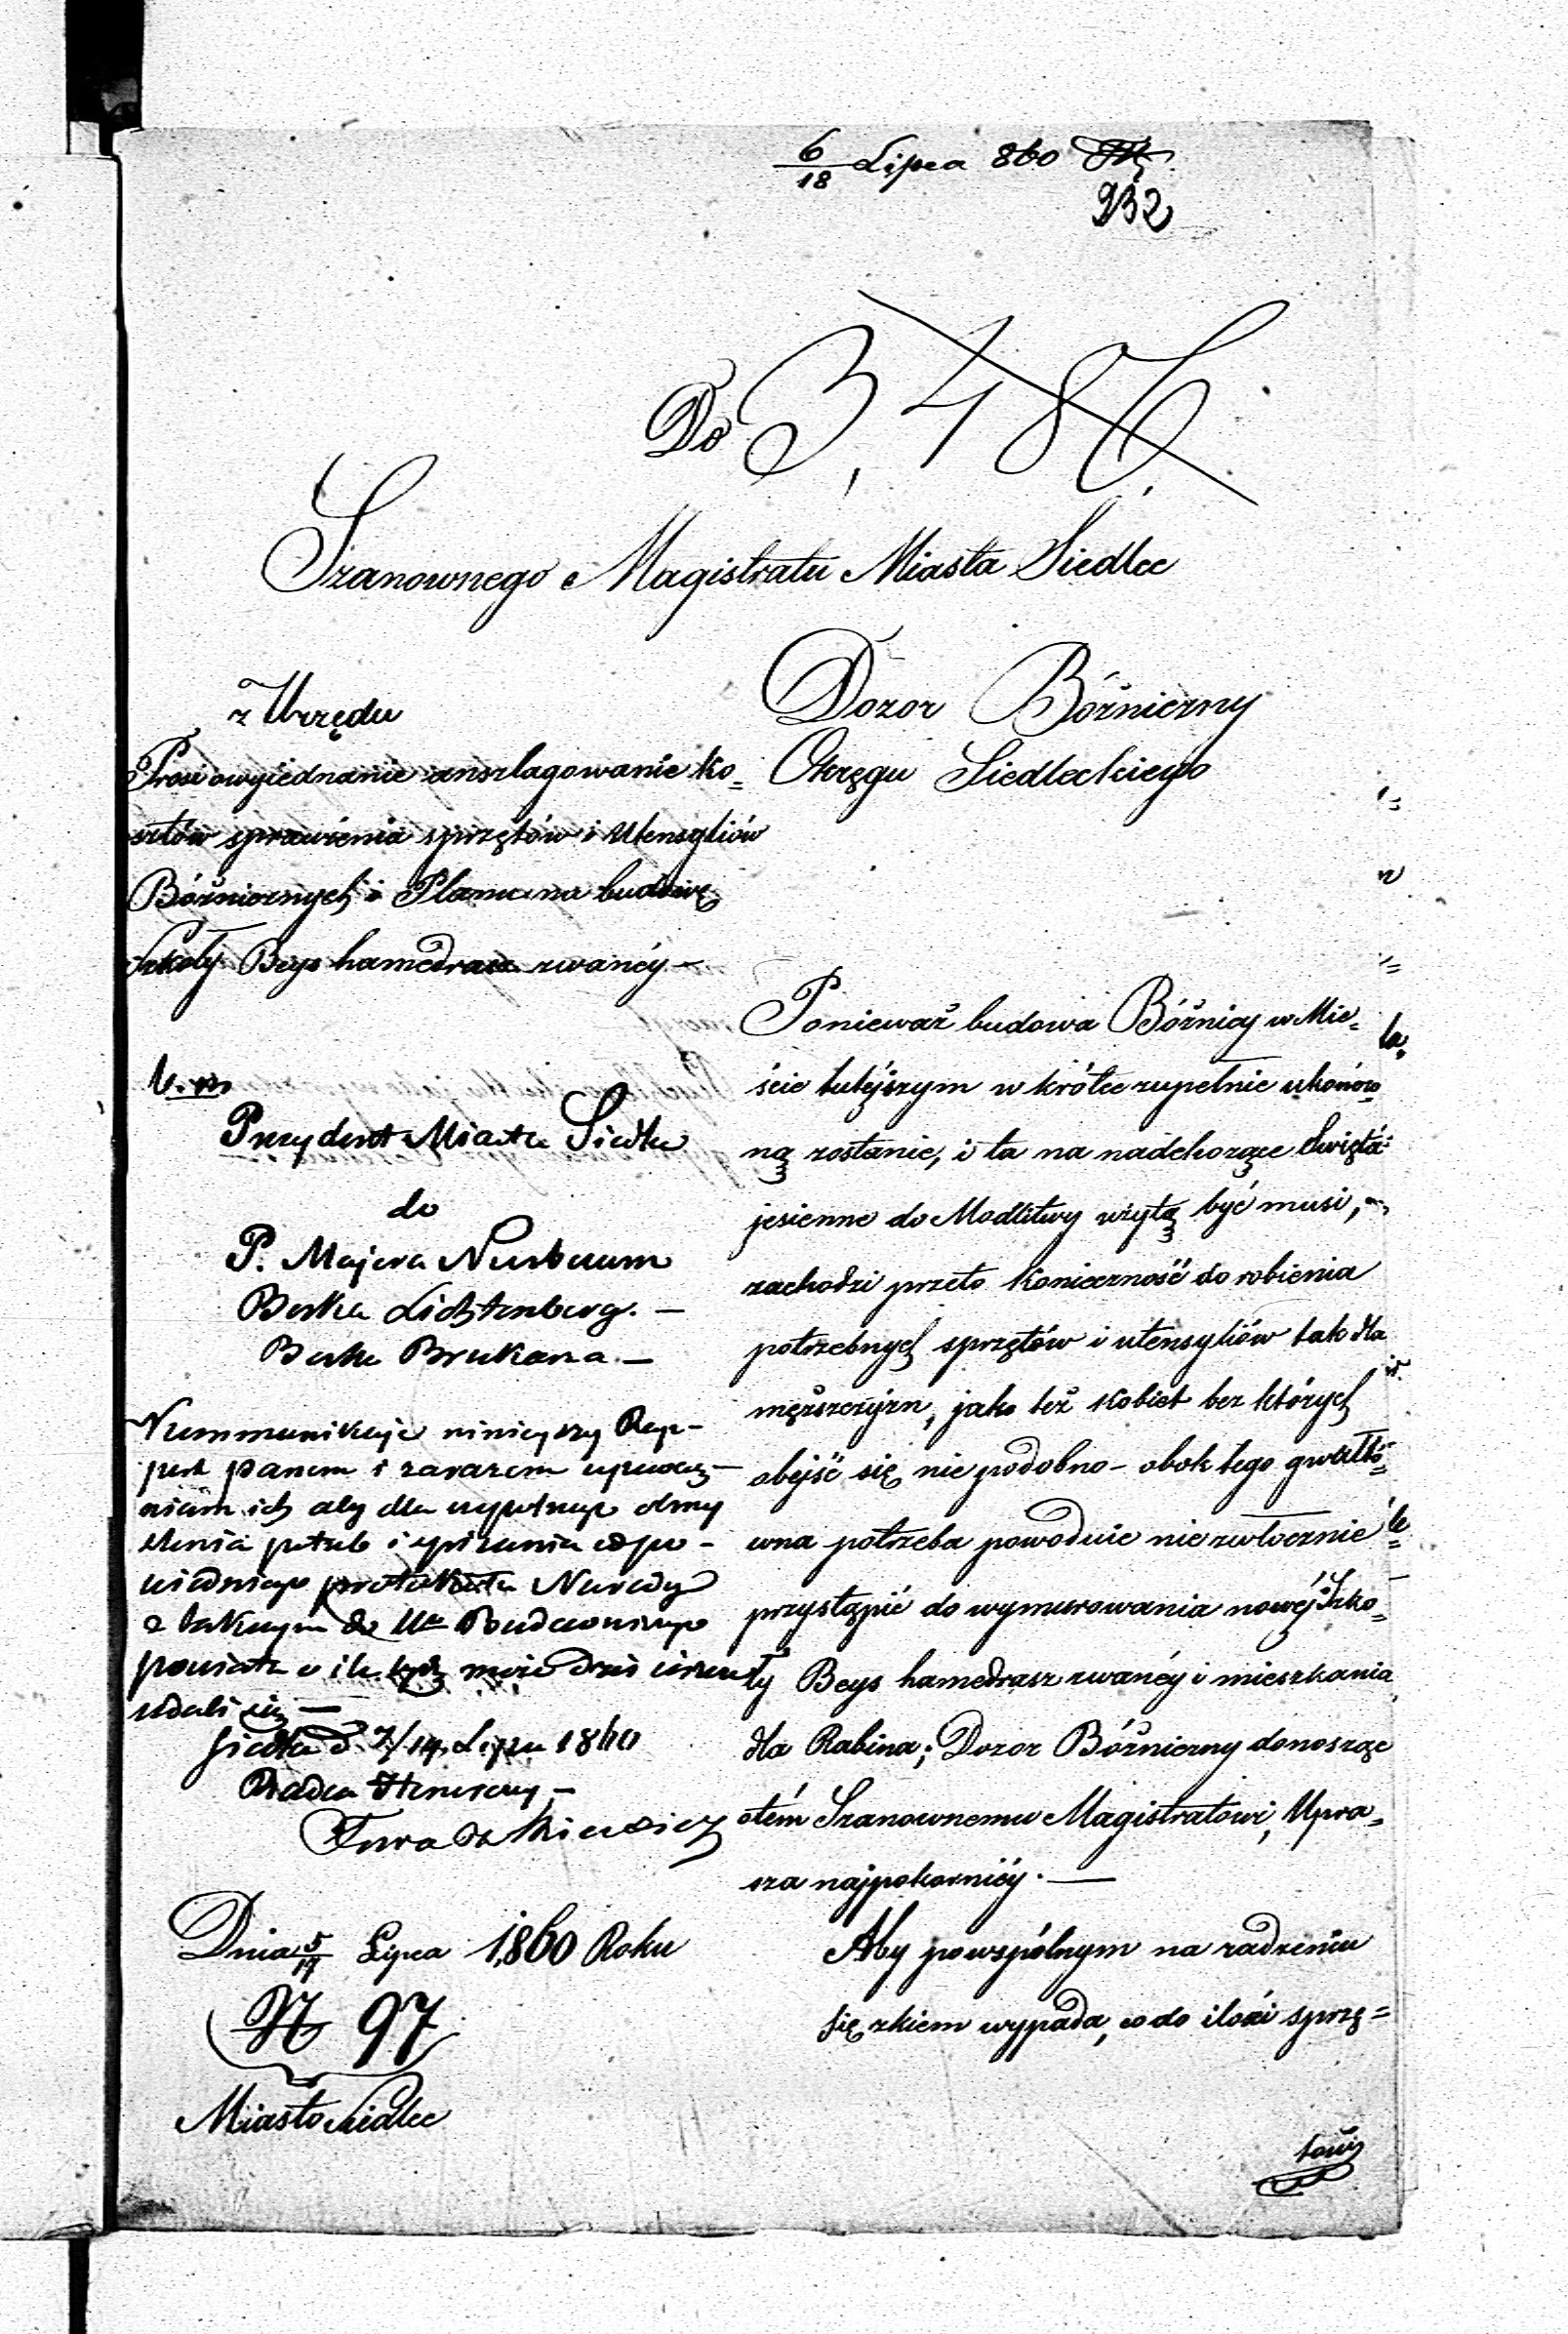 6/18 Lipca 860
932
Do 3,486
Szanownego Magistratu Miasta Siedlec
z Urzędu
Prosi o wyjednanie anszlagowanie ko=
sztów sprawienia sprzętów i Utensyliów
Bóżnicznych i Planu na budowę
Szkoły Beys hamedrasz zwanéy —
Prezydent Miasta Siedlec
do
P. Majera Nusbaum
Berka Lichtenberg. —
Berka Brukarza —
Kommunikuje niniejszy Rap-
port panom i zarazem upoważ-
niam ich aby dla
i spisania odpo-
wiedniego protokółu
z takowym do Budowniczego
powiatu
udali się —
Siedlce d 7/19 Lipca 1860
Radca Honorowy —
Dnia 5/17 Lipca 1860 Roku
N 97
Miasto Siedlec
Dozor Bóżniczny
Okręgu Siedleckiego
Ponieważ budowa Bóżnicy w Mie=
ście tutéjszym w krótce zupełnie ukończo=
ną zostanie, i ta na nadchozące Swięta
jesienne do Modlitwy wziętą być musi,
zachodzi przeto Konieczność do robienia
potrzebnych sprzętów i utensyliów tak dla
męższczyzn, jako też Kobiet bez których
obejść się nie podobno - obok tego gwałto=
wna potrzeba powoduie nie zwłocznie
przystąpić do wymurowania nowéj Szko=
ły Beys hamedrasz zwanéy i mieszkania
dla Rabina; Dozor Bóżniczny donosząc
otém Szanownemu Magistratowi, Upra=
sza najpokorniéy. —
Aby powspólnym na radzeniu
się zkiem wypada, co do ilości sprzę=
tów